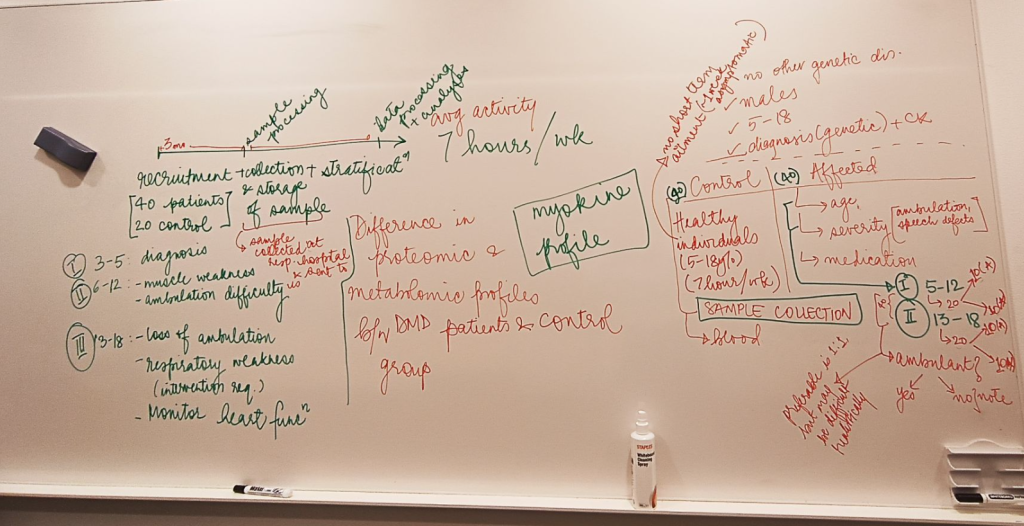 sample
processing
Data
processing
+ analytes
3mo
recruitment → collection + stratificatⁿ
& storage
of sample
[40 patients
20 control]
sample
collected at
resp. hospital
& sent to
us
I 3-5: diagnosis
II 6-12: - muscle weakness
- ambulation difficulty
III 13-18: - loss of ambulation
- respiratory weakness
(intervention req.)
- Monitor heart funcⁿ
avg activity
7 hours/wk
Difference in
proteomic &
metabolomic profiles
b/w DMD patients & control
group
myokine
profile
no short term
ailment (~1 week
asymptomatic)
no other genetic dis.
✓ males
✓ 5-18
✓ diagnosis (genetic) + CK
(40) Control
Healthy
individuals
(5-18y/o)
(7 hour/wk)
SAMPLE COLLECTION
→ blood
(40) Affected
→ age
→ severity [ambulation,
speech defects]
→ medication
I 5-12
→ 20
II 13-18
→ 20
→ ambulant?
yes
no/note
preferable is 1:1
but may
be difficult
realistically
STAPLES
Whiteboard
Cleaning
Spray